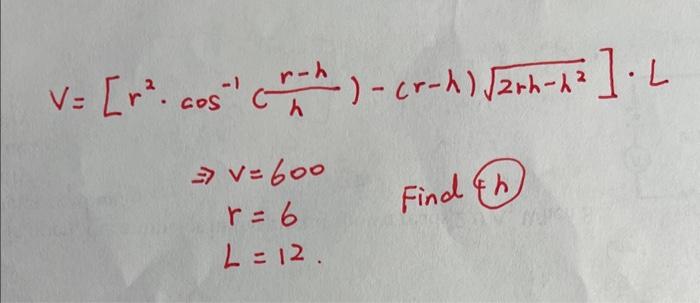 V = [r². cos⁻¹ (r-h/h) - (r-h)√2rh-h²]. L
⇒ V = 600
r = 6
L = 12.
Find h